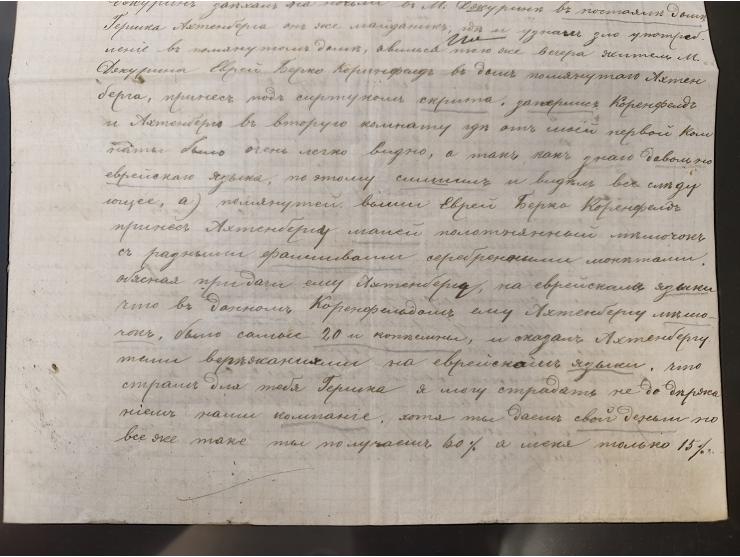 Дзкуринъ заѣхалъ на ночлегъ въ М. Дзкуринъ въ постоялій домъ
Гершка Ахтенберга онъ же майданикъ, гдѣ и узналъ зло употреб
леніе въ помянутомъ домѣ, явился тею же вечера житель М.
Дзкурина Еврей Берко Коринфелдъ въ домъ помянутаго Ахтен
берга, принесъ подъ сиртукомъ скрита, заперлись Коренфелдъ
и Ахтенбергъ въ вторую комнату гдѣ отъ моей первой Ком
наты было очень легко видно, а такъ какъ знаю довольно
еврейскаго языка, поэтому слишилъ и видѣлъ все слѣду
ющее, а) помянутей више Еврей Берко Коренфелдъ
принесъ Ахтенбергу малей полотнянный мѣшочокъ
съ разными фалшивами серебренными монѣтами,
обяснял придачи ему Ахтенбергу, на еврейскамъ языки
что въ данномъ Коренфельдомъ ему Ахтенбергу мѣшо-
чокъ, было самые 20 и копѣешни, и сказалъ Ахтенбергу
теми верзяканиями на еврейскамъ языки, что
страмъ для тебя Гершка я могу страдать не до держа
ніемъ наши компаніе, хотя ты даешъ свой деньги но
все же таке ты получаешъ 60% а меня только 15%.